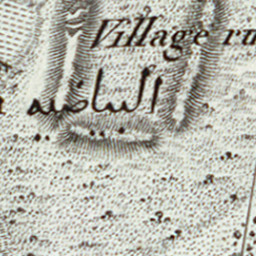 Village ru
البياضيه